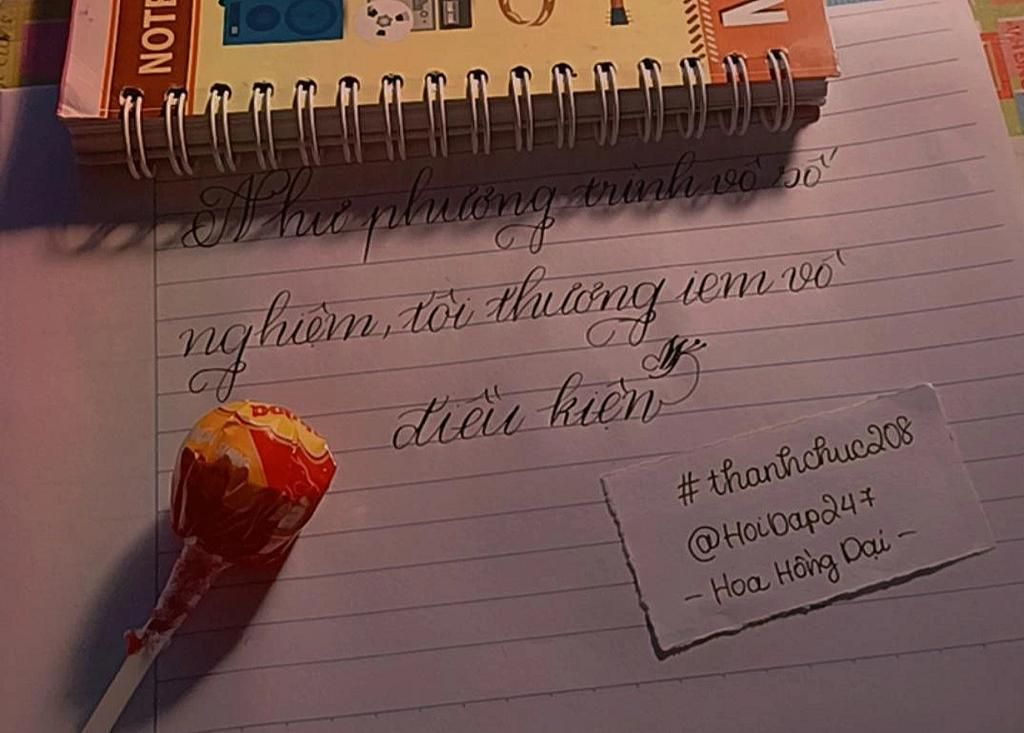 NOTE
N
Như phương trình vô số
nghiệm, tôi thương iem vô
điều kiện
#thanhchuc208
@HoiDap247
- Hoa Hồng Dại -